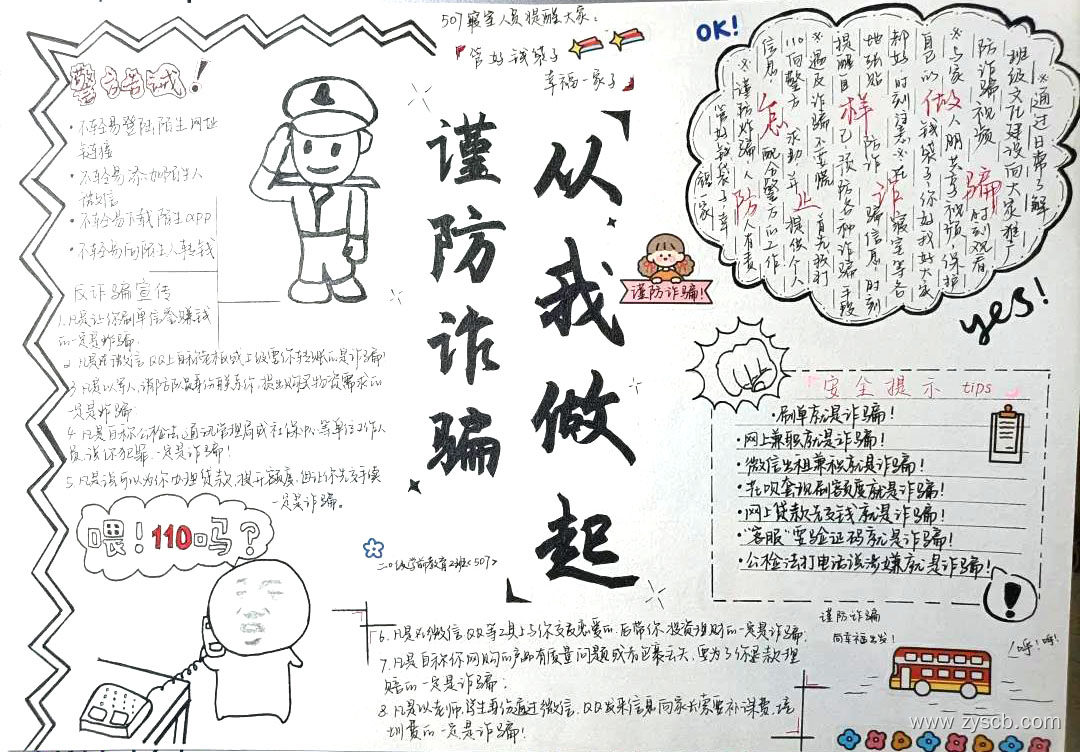 507寝室人员提醒大家：
管好钱袋子
幸福一家子
OK!
警告诫！
•不轻易登陆陌生网址
链接
•不轻易添加陌生人
微信
•不轻易下载陌生app
•不轻易向陌生人转钱
反诈骗宣传
1.凡是让你刷单信誉赚钱
的一定是诈骗
2.凡是在微信QQ上自称老板或上级要你转账的是诈骗
3.凡是以军人、消防队员等身份联系你，提出购买物资需求的
一定是诈骗
4.凡是自称公检法、通讯管理局或社保中心等单位工作人
员，说你犯罪一定是诈骗！
5.凡是说可以为你办理贷款、提升额度，但让你先交手续
一定是诈骗。
喂！110吗？
谨防诈骗
从我做起
谨防诈骗！
二〇级学前教育2班<507>
怎样做
防止诈骗
※通过日常了解
班级文化建设向大家推广
防诈骗视频 时刻观看
※与家人朋友共享视频，保护
自己的钱袋子，你好我好大家
都好 时刻注意※在寝室等各
地张贴防诈骗信息，时刻
提醒自己，预防各种诈骗手段
※遇反诈骗不要慌 首先拨打
110向警方求助并提供个人
信息，配合警方的工作
※谨防诈骗人人有责
管好钱袋子，幸
福一家
yes!
安全提示 tips
•刷单就是诈骗！
•网上兼职就是诈骗！
•微信出租兼租就是诈骗！
•花呗套现刷额度就是诈骗！
•网上贷款先交钱就是诈骗！
•“客服”要验证码就是诈骗！
•公检法打电话说涉嫌就是诈骗！
谨防诈骗
向幸福出发！
呼！呼！
6.凡是在微信QQ等工具上与你交友恋爱的，后带你投资理财的一定是诈骗.
7.凡是自称你网购的产品有质量问题或有已丢失，要为了你退款理
赔的一定是诈骗.
8.凡是以老师、学生身份通过微信、QQ发来信息向家长索要补课费、培
训费的一定是诈骗！
www.zyscb.com